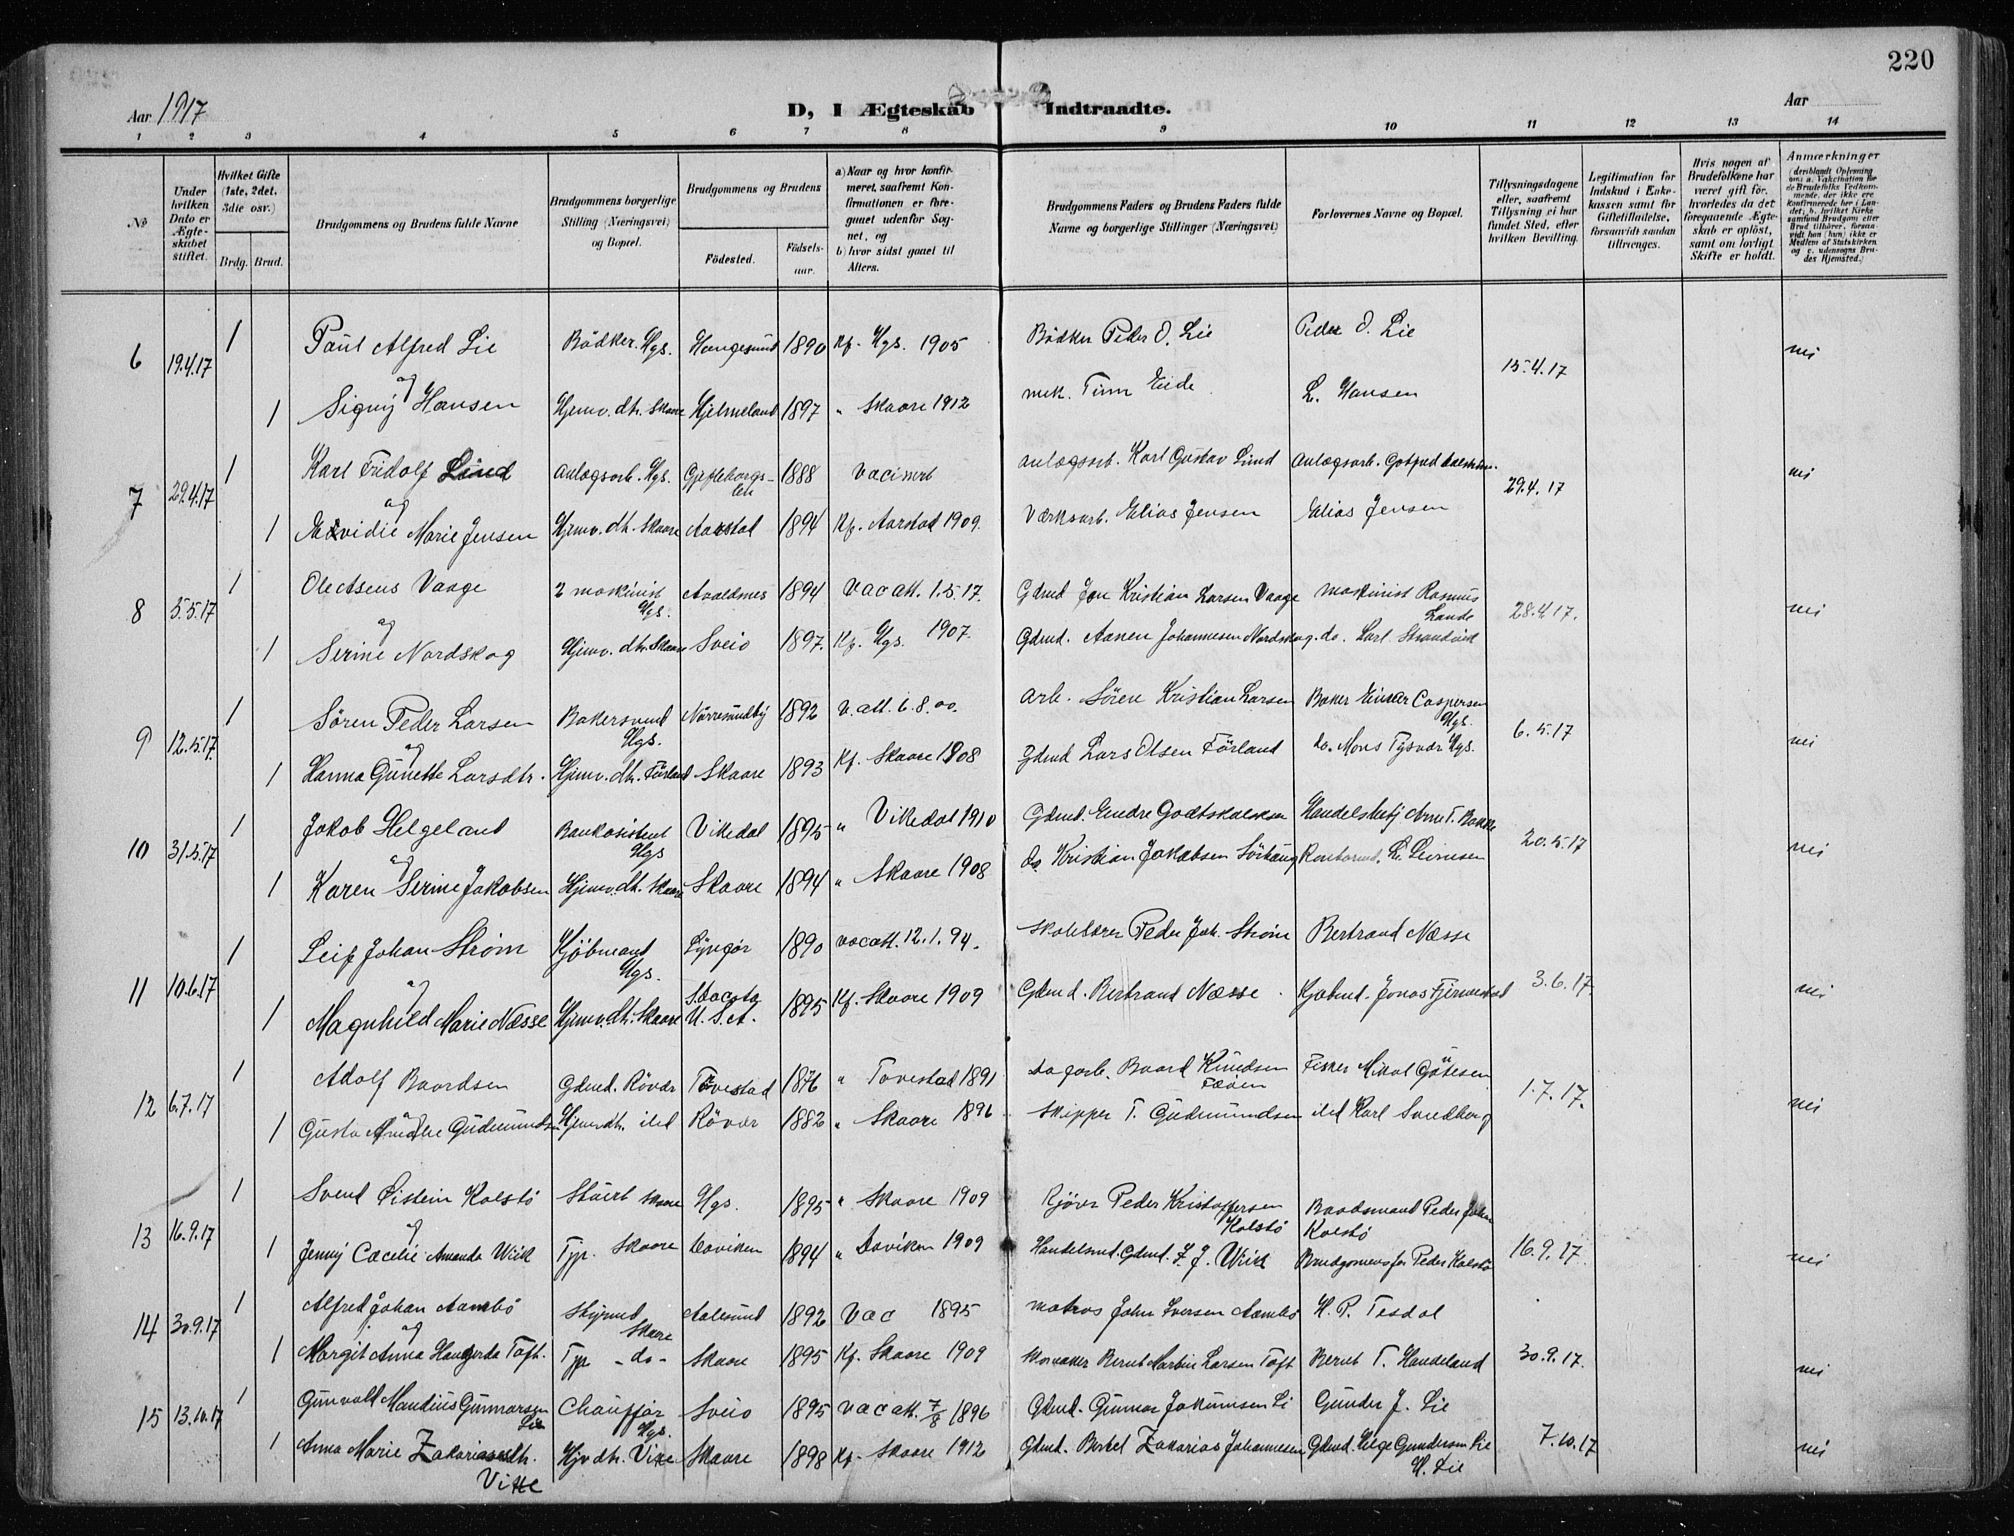 220
Aar 1917
D, I Ægteskab Indtraadte.
Aar
1 2 3 4 5 6 7 8 9 10 11 12 13 14
№
Under hvilken Dato er Ægteskabet stiftet.
Hvilket Gifte (1ste, 2det, 3die osv.)
Brdg. Brud.
Brudgommens og Brudens fulde Navne
Brudgommens borgerlige Stilling (Næringsvei) og Bopæl.
Brudgommens og Brudens
Fødested. Fødselsaar.
a) Naar og hvor konfirmeret, saafremt Konfirmationen er foregaaet udenfor Sognet, og
b) hvor sidst gaaet til Alters.
Brudgommens Faders og Brudens Faders fulde Navne og borgerlige Stillinger (Næringsvei)
Forlovernes Navne og Bopæl.
Tillysningsdagene eller, saafremt Tillysning ei har fundet Sted, efter hvilken Bevilling.
Legitimation for Indskud i Enkekassen samt for Giftetilladelse, forsaavidt saadan tiltrænges.
Hvis nogen af Brudefolkene har været gift før, hvorledes da det foregaaende Ægteskab er opløst, samt om lovligt Skifte er holdt.
Anmærkninger
6 19.4.17 1 Paul Alfred Lie Bödker Hgs. Haugesund 1890 Kf. Hgs. 1905 Bödker Peder O. Lie Peder O. Lie 15.4.17 nei
og
1 Signy Hansen Hjemv. dtr. Skaare Hjelmeland 1897 " Skaare 1912 mek. Tinn Eide L. Hansen
7 29.4.17 1 Karl Fridolf Lind anlægsarb. Hgs. Gefleborgs-len 1888 vaccinert anlægsarb. Karl Gustav Lind Anlægsarb. 29.4.17 nei
og
1 Marie Jensen Hjemv. dtr. Skaare Aarstad 1894 Kf. Aarstad 1909. Værksarb. Elias Jensen Elias Jensen
8 5.5.17 1 Ole Asens Vaage 2 maskinist Hgs. Avaldnes 1894 Vac att. 1.5.17. Gdmd Jon Kristian Larsen Vaage maskinist Rasmus Lande 28.4.17. nei
og
1 Serine Nordskog Hjemv. dtr. Skaare Sveio 1897. Kf. Hgs. 1907. Gdmd. Aanen Johannesen Nordskog do. Carl Strandvik
9 12.5.17 1 Sören Peder Larsen Bakersvend Hgs. Nörresundby 1892 v. att. 6.8.00. arb. Sören Kristian Larsen Baker Einar Caspersen Hgs. 6.5.17 nei
og
1 Hanna Gunette Larsdtr. Hjemv. dtr. Förland Skaare 1893 Kf. Skaare 1908 Gdmd Lars Olsen Förland do. Mons Tysvær Hgs.
10 31.5.17 1 Jakob Helgeland Bankasistent Hgs Vikedal 1895 " Vikedal 1910 Gdmd. Endre Godtskalksen Handelsbetj Arne T. Bakke 20.5.17 nei
og
1 Karen Serine Jakobsen Hjemv. dtr. Skaare Skaare 1894 " Skaare 1908 do Kristian Jakobsen Sörhaug Kontormd. L. Simesen
11 10.6.17 1 Leif Johan Strøm Kjøbmand Hgs. Lyngør 1890 vacatt. 12.1.94. Skolelærer Peder Joh. Strøm Bertrand Næsse 3.6.17. nei
og
1 Magnhild Marie Næsse Hjemv. dtr. Skaare S. Dacota U.S.A. 1895 Kf. Skaare 1909 Gdmd. Bertrand Næsse Kjøbmd. Jonas Fjermestad
12 6.7.17 1 Adolf Baardsen Gdmd. Røvær Torvestad 1876 " Torvestad 1891 Dagarb. Baard Knudsen Fæöen Fisker Mikal Götesen 1.7.17. nei
1 Gusta Amalie Gudmundsen Hjemvdtr. ibd Røvær 1882 " Skaare 1896 Skipper T. Gudmundsen ibd Karl Svedberg
13 16.9.17 1 Svend Øistein Kolstö Stuert Skaare Hgs. 1895 " Skaare 1909 Rjöver Peder Kristoffersen Kolstö Baadsmand Peder Johan Kolstö 16.9.17. nei
og
1 Jenny Cæcelie Amanda Wiik Typ. Skaare Daviken 1894 " Daviken 1909 Handelsmd. Gdmd. F. J. Wiik Brudgomens far Peder Kolstö
14 30.9.17 1 Alfred Johan Aambö Styrmd Skaare Aalesund 1892 Vac 1895 matros John Iversen Aambö H. P. Tesdal 30.9.17. nei
og
1 Margit Anna Toft. Typ - do - Skaare 1895 Kf. Skaare 1909 Skomaker Bernt Martin Larsen Toft Bernt T. Handeland
15 13.10.17 1 Gunvald Mandius Gunnarsen Lie Chauffør Hgs. Sveio 1895 vac att. 7/8 1896 Gdmd. Gunnar Jakumsen Li Gunder J. Lie 7.10.17 nei
1 Anna Marie Zakariasdtr. Vikse Hjvdtr. Vixe Skaare 1898 Kf. Skaare 1912 Gdmd. Bertel Zakarias Johannesen Gdmd. Helge Gundersen Lie H. Lie